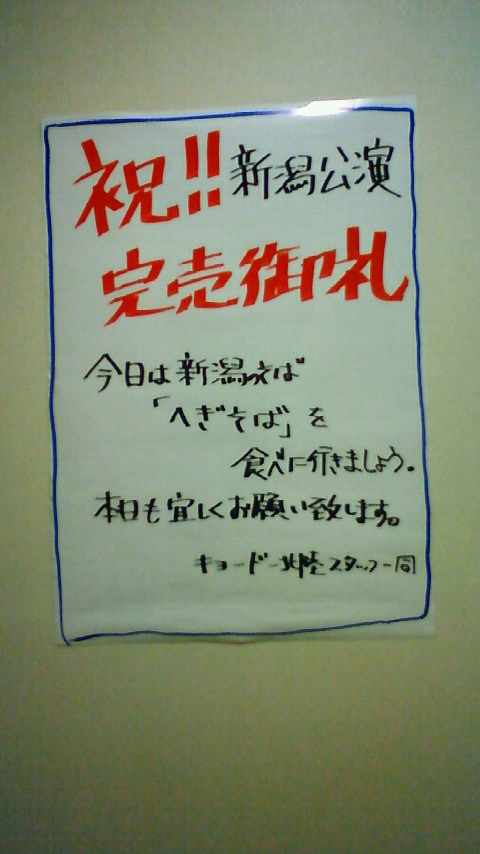 祝!! 新潟公演
完売御礼
今日は新潟のそば
「へぎそば」を
食べに行きましょう。
本日も宜しくお願い致します。
キョードー北陸スタッフ一同